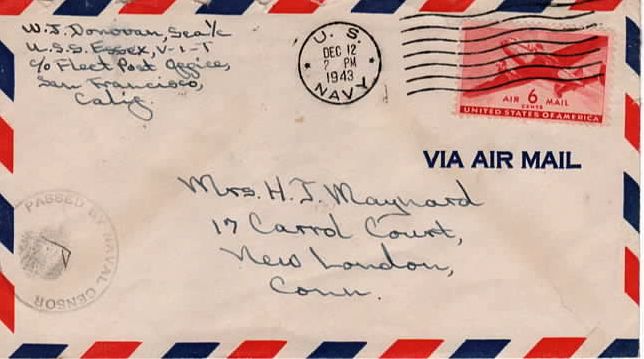 W. J. Donovan, Sea 1/c
U.S.S. Essex, V-1-T
c/o Fleet Post Office,
San Francisco,
Calif.
U. S.
DEC 12
2 PM
1943
NAVY
AIR 6 MAIL
CENTS
UNITED STATES OF AMERICA
VIA AIR MAIL
Mrs. H. J. Maynard
17 Carrol Court,
New London,
Conn.
PASSED BY NAVAL CENSOR